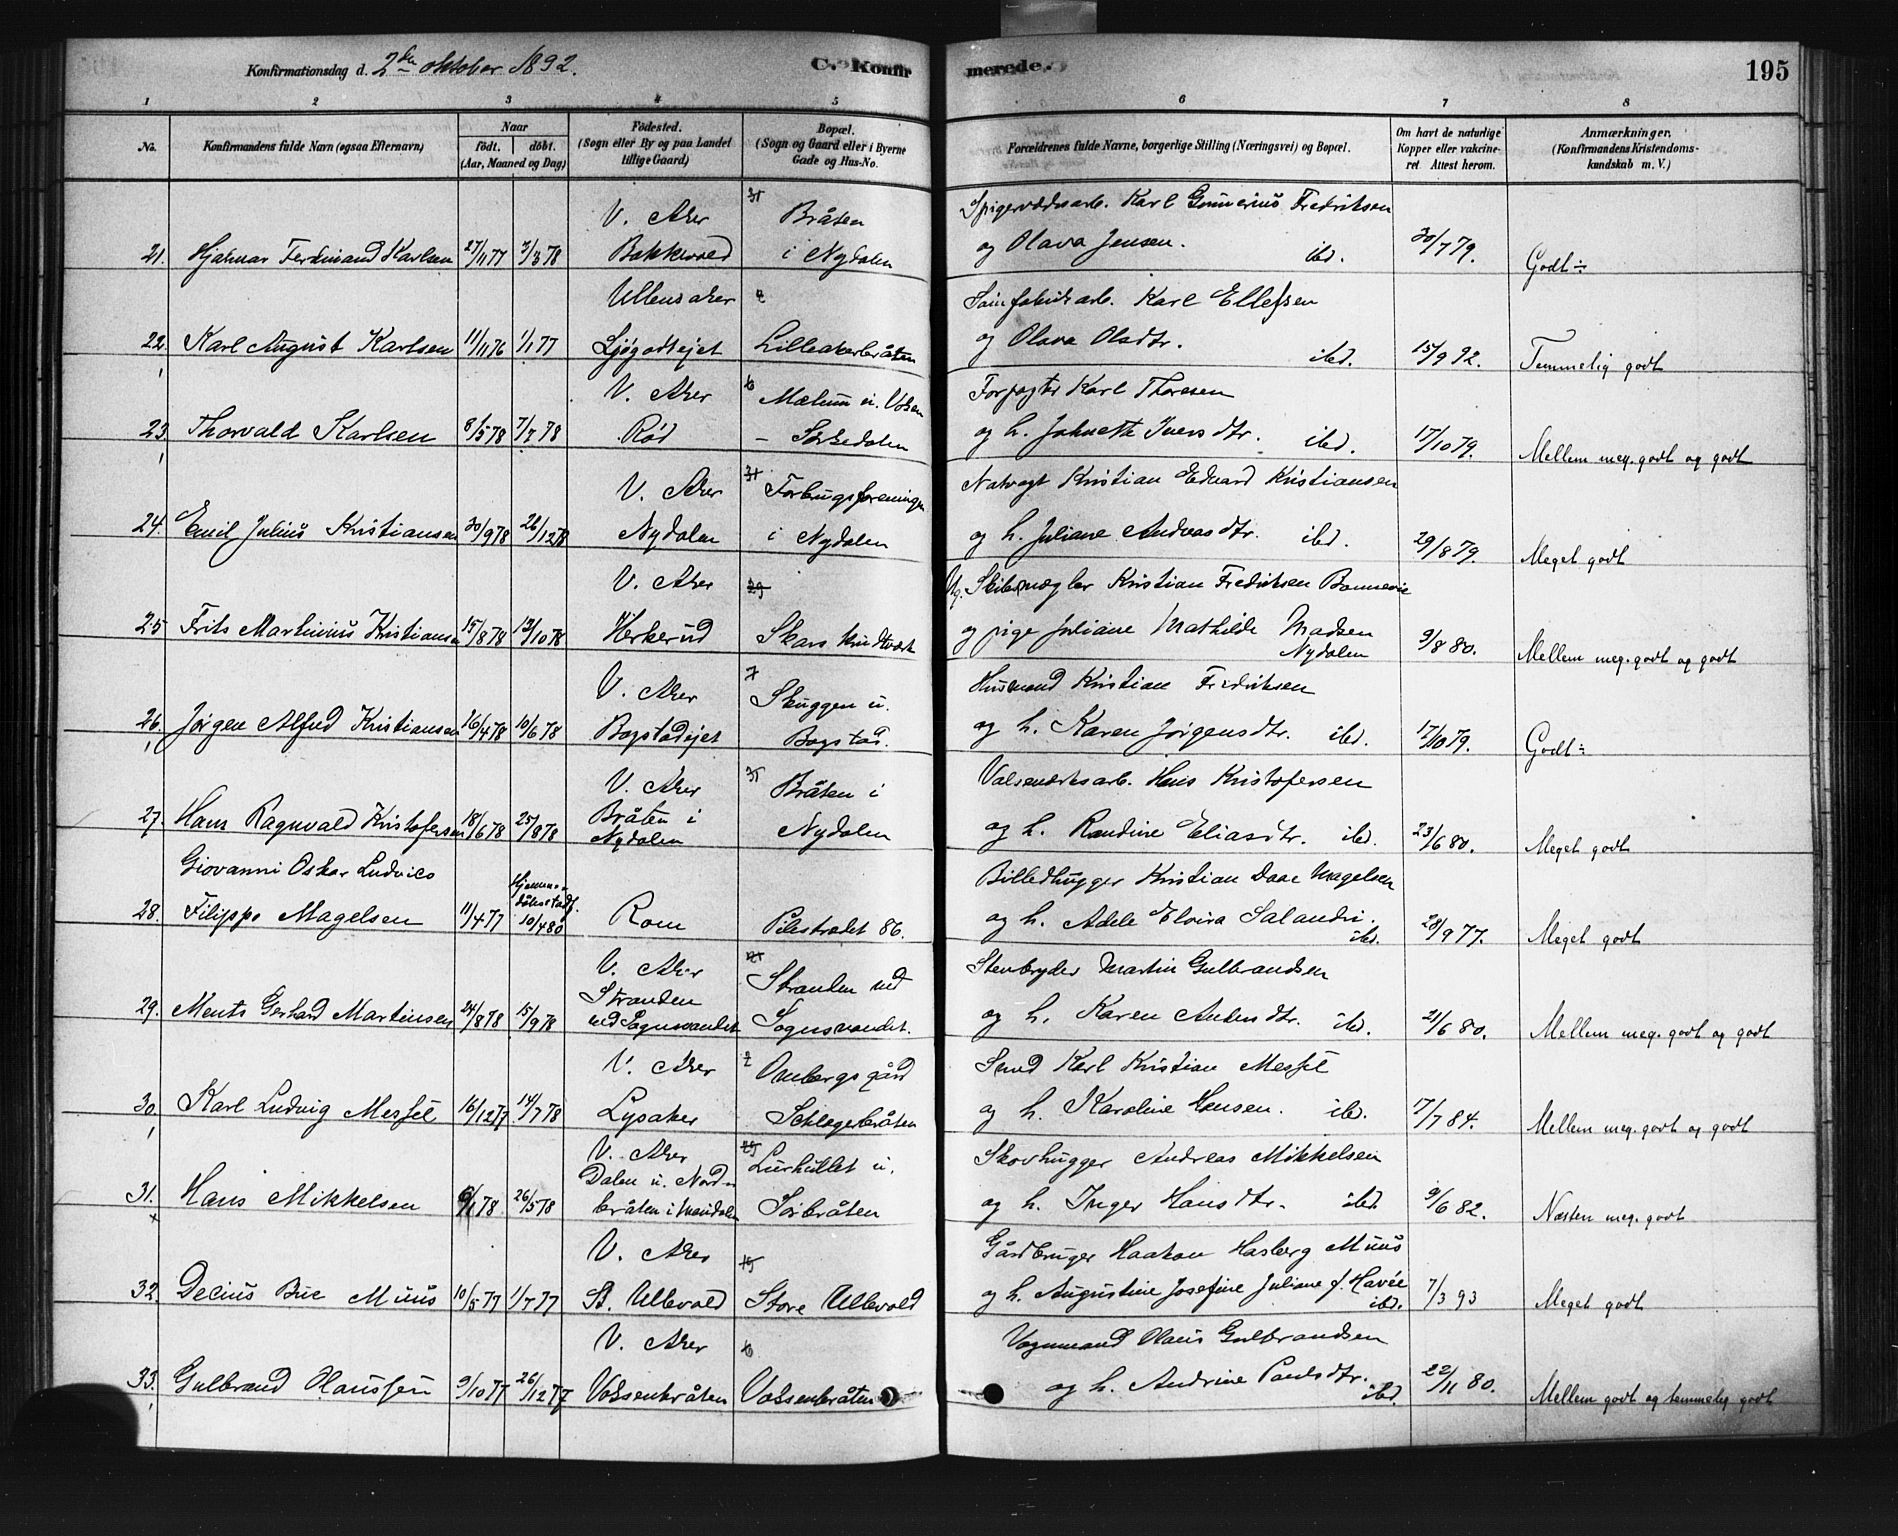 Konfirmationsdag d. 2den oktober 1892. C. Konfirmerede. 195
1 2 3 4 5 6 7 8
No. Konfirmandens fulde Navn (ogsaa Efternavn) Naar født. døbt. (Aar, Maaned og Dag) Fødested. (Sogn eller By og paa Landet tillige Gaard) Bopæl. (Sogn og Gaard eller i Byerne Gade og Hus-No. Forældrenes fulde Navne, borgerlige Stilling (Næringsvei) og Bopæl. Om havt de naturlige Kopper eller vakcineret Attest herom. Anmærkninger. (Konfirmandens Kristendomskundskab m. V.)
V. Aker Bråten Karl Gunnerius Fredriksen
21. Hjalmar Ferdinand Karlsen 27/11 77 3/3 78 Bakkevold i Nydalen og Olava Jensen. ibd. 30/7 79. Godt ÷
Ullensaker Karl Ellefsen
22. Karl August Karlsen 11/11 76 1/1 77 Lilleakerbråten og Olava Olsdtr. ibd. 15/9 92. Temmelig godt
V. Aker Forpagter Karl Thoresen
23. Thorvald Karlsen 8/5 78 7/7 78 Rød - Sørkedalen og h. Johnette Iversdtr. ibd. 17/10 79. Mellem meg. godt og godt
V. Aker Forbrugsforeningen Natvagt Kristian Edvard Kristiansen
24. Emil Julius Kristiansen 30/9 78 26/12 78 Nydalen i Nydalen og h. Juliane Andreasdtr. ibd. 29/8 79. Meget godt
V. Aker Ug. Skibsmægler Kristian Fredriksen
25. Frits Martinius Kristiansen 15/8 78 13/10 78 Herkerud og pige Juliane Mathilde Madsen Nydalen 9/8 80. Mellem meg. godt og godt
V. Aker 7 Skuggen u. Husmand Kristian Fredriksen
26. Jørgen Alfred Kristiansen 16/4 78 10/6 78 Bogstadejet Bogstad. og h. Karen Jørgensdtr. ibd. 17/10 79. Godt ÷
V. Aker Bråten i Valseværksarb. Hans Kristofersen
27. Hans Ragnvald Kristofersen 18/6 78 25/8 78 Bråten i Nydalen Nydalen og h. Randine Eliasdtr. ibd. 23/6 80. Meget godt
Giovanni Oskar Ludvico Billedhugger Kristian Daae Magelsen
28. Filippo Magelsen 11/4 77 Hjemmedøbt stadf. 10/4 80 Rom Pilestrædet 86. og h. Adele Elvira Salandri. ibd. 28/9 77. Meget godt
V. Aker Stranden ved Stenbryder Martin Gulbrandsen
29. Ments Gerhard Martinsen 24/8 78 15/9 78 Stranden ved Sognsvandet Sognsvandet. og h. Karen Andersdtr. ibd. 21/6 80. Mellem meg. godt og godt
V. Aker 2 Smed Karl Kristian Messel
30. Karl Ludvig Messel 16/12 77 14/7 78 Lysaker og h. Karoline Hansen. ibd. 17/7 84. Mellem meg. godt og godt
V. Aker Lurhullet u. Skovhugger Andreas Mikkelsen
31. Hans Mikkelsen 6/1 78 26/5 78 Dalen u. Nordbråten i Maridalen Sørbråten og h. Inger Hansdtr. ibd. 9/6 82. Næsten meg. godt
V. Aker Gårdbruger Haakon Hasberg Muus
32. Decius Bue Muus 10/5 77 1/7 77 St. Ullevold Store Ullevold og h. Augustine Josefine Juliane f. Havée ibd. 7/3 93 Meget godt
V. Aker Vognmand Olaus Gulbrandsen
33. Gulbrand Olaussen 9/10 77 26/12 77 Voksenbråten Voksenbråten og h. Andrine Paulsdtr. ibd. 22/11 80. Mellem godt og temmelig godt